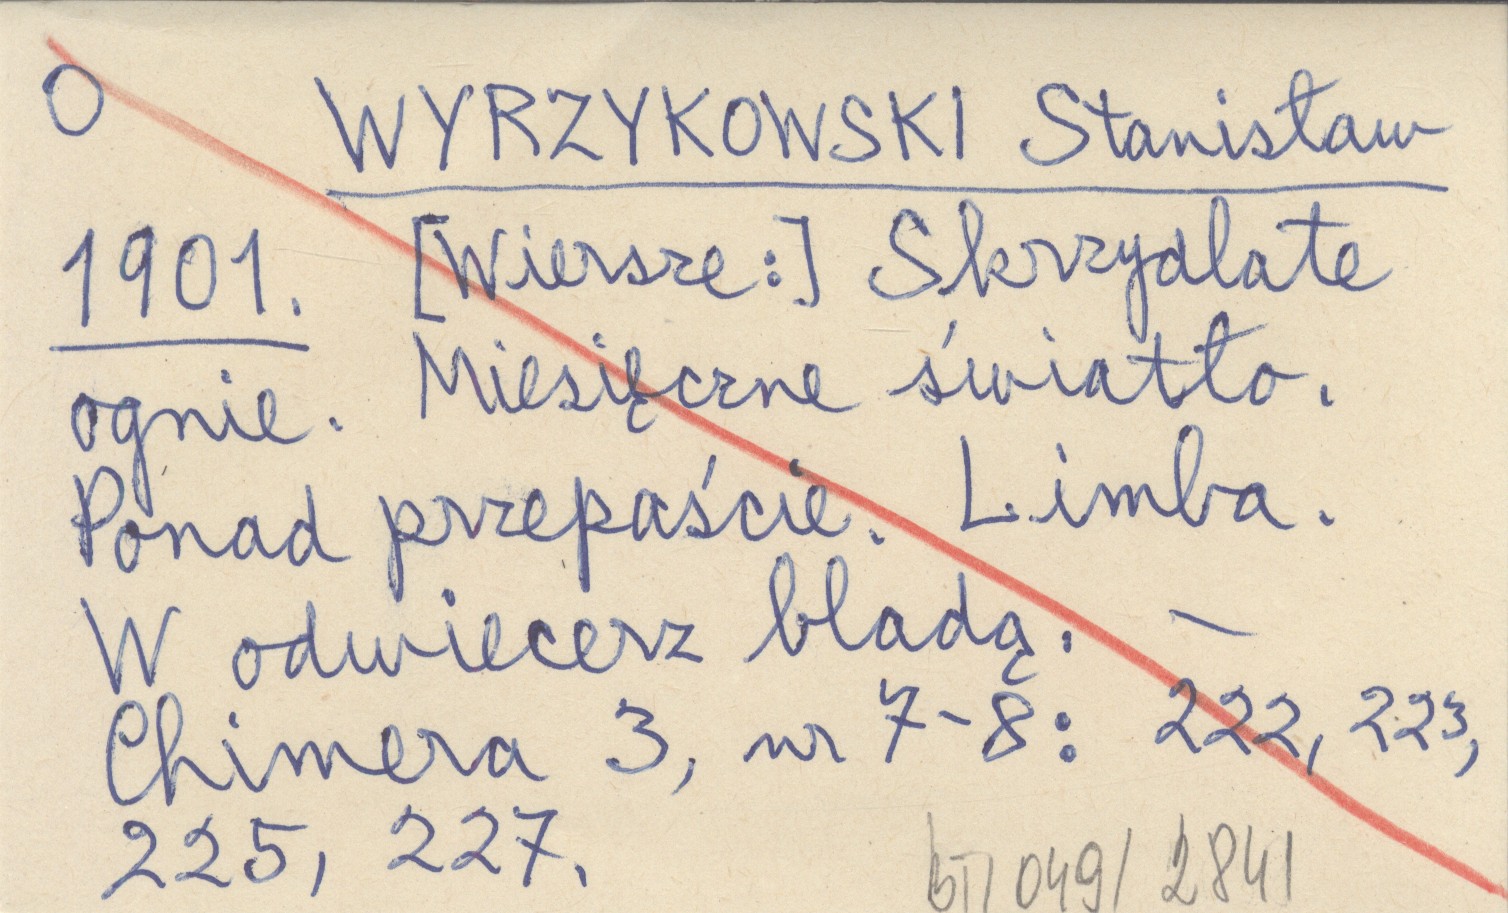 O WYRZYKOWSKI Stanisław
1901. [Wiersze:] Skrzydlate
ognie. Miesięczne światło.
Ponad przepaście. Limba.
W odwiecerz bladą. –
Chimera 3, nr 7-8: 222, 223,
225, 227.
049/2841